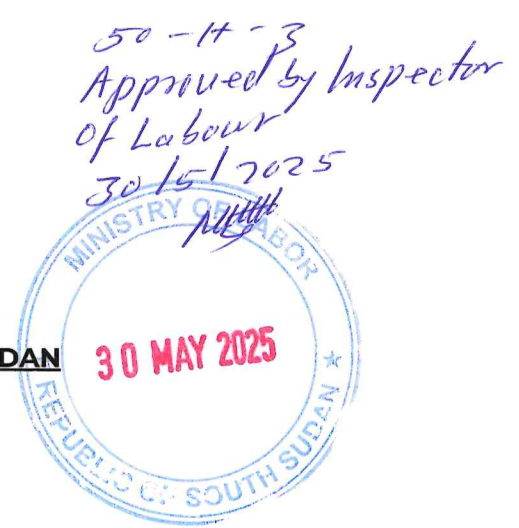 50-H-3
Approved by Inspector
of Labour
30/5/2025
MINISTRY OF LABOR
DAN
30 MAY 2025
REPUBLIC OF SOUTH SUDAN